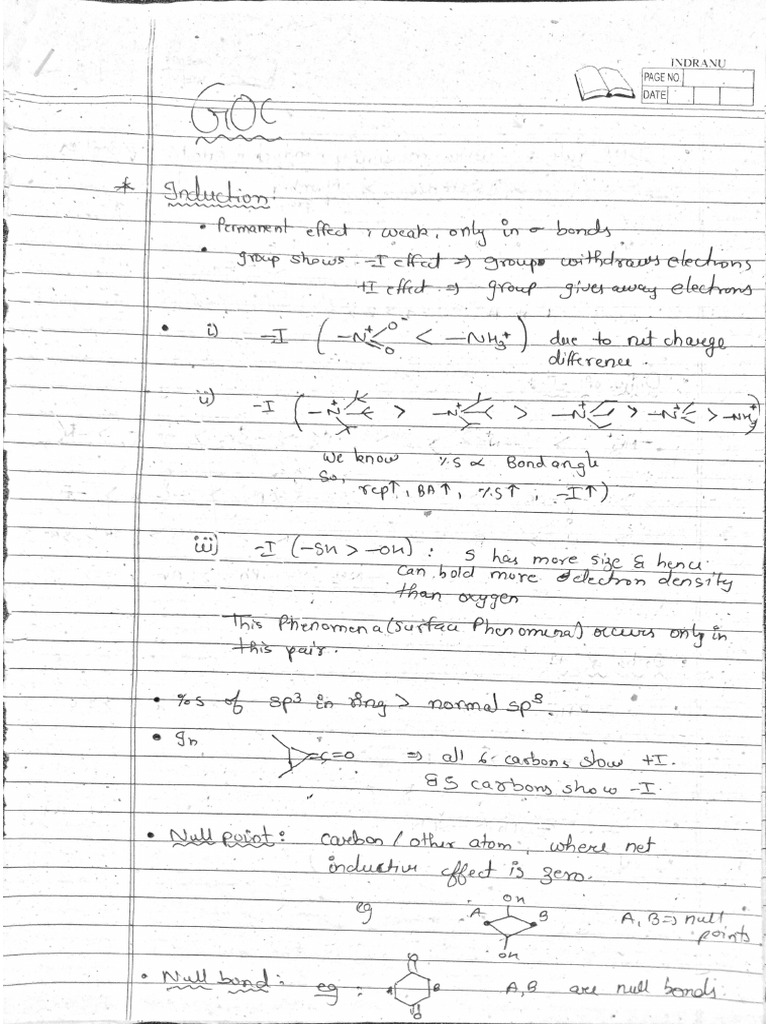 INDRANU
PAGE NO.
DATE
GOC
* Induction.
• Permanent effect, weak, only in σ bonds
• group shows -I effect ⇒ group withdraws electrons
+I effect ⇒ group gives away electrons
• i) -I ( -N⁺ O⁻ O < -NH₃⁺ ) due to net charge
difference.
ii) -I ( -N⁺ > -N⁺ > -N⁺ > -N⁺ > -NH₃⁺ )
We know %S ∝ Bond angle
So, rep↑, BA↑, %S↑, -I↑)
iii) -I (-SH > -OH) : S has more size & hence
can hold more electron density
than oxygen
This Phenomena (Surface Phenomena) occurs only in
this pair.
• %S of sp³ in ring > normal sp³.
• In =C=O ⇒ all 6 carbons show +I.
& 5 carbons show -I.
• Null point: carbon / other atom, where net
inductive effect is zero.
eg A OH B OH A, B ⇒ null
points
• Null bond: eg: O A B O A, B are null bonds.